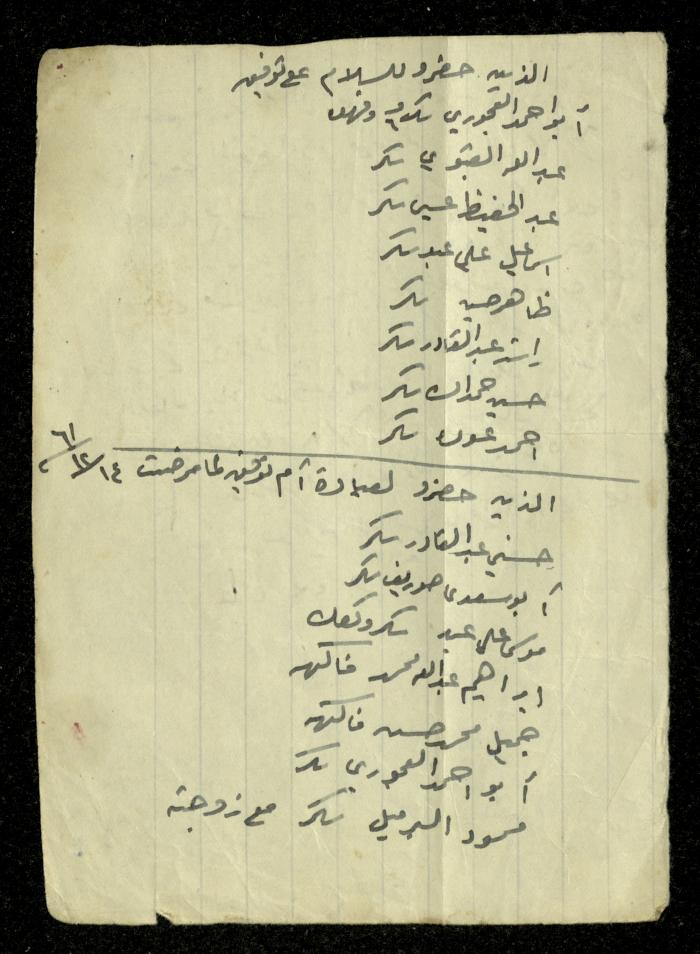 الذين حضرو للسلام على توفيق
أبو احمد العجوري سكر
عبدالله القبتوي سكر
عبد الحفيظ عيسى سكر
اسماعيل علي عبد سكر
ظاهر حسين سكر
عبدالقادر سكر
حسين حمدان سكر
احمد عوده سكر
الذين حضرو لعيادة أم توفيق لما مرضت ١٤/١٢/٦١
حسني عبدالقادر سكر
أبو سعدى سكر
موسى علي عبد سكر وكعك
ابراهيم عبدالله محمد فاكهه
جميل محمد حسين فاكهه
أبو احمد العجوري سكر
محمود البرميل سكر مع زوجته